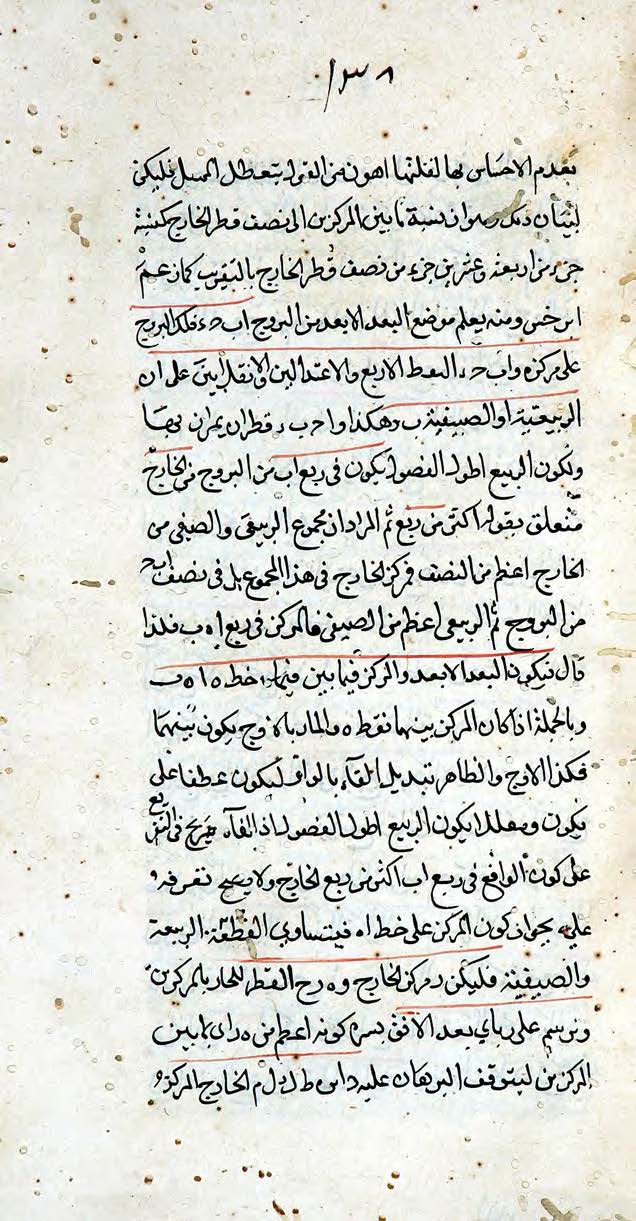 ١٣٨
بعدم الاحساس بها لقلتها اهون من القول بتعطل الميل فليكن
لبيان ذلك وان نسبة ما بين المركزين الى نصف قطر الخارج كنسبة
جزء من اربعة وعشرين جزء من نصف قطر الخارج بالتقريب كما زعم
ابرخس ومنه يعلم موضع البعد الابعد من البروج اب حء فلك البروج
على مركزه واب حء النقط الاربع والاعتدالين والانقلابين على ان
الربيعية ا والصيفية ب وهكذا واح ب ء قطران يمران بها
ولكون الربيع اطول الفصول يكون في ربع اب من البروج من الخارج
متعلق بقوله اكثر من ربع ثم المراد ان مجموع الربيعى والصيفى من
الخارج اعظم من النصف فمركز الخارج في هذا المجموع بل في نصف اب ح
من البروج ثم الربيعى اعظم من الصيفى فالمركز في ربع ا ه ب فلذا
قال فيكون البعد الابعد والمركز فيما بين خط ه ا ه ب
وبالجملة اذا كان المركز بينهما فقط ه والمار بالاوج يكون بينهما
فكذا الاوج والظاهر تبديل الفاء بالواو ليكون عطفا على
يكون ومعللا بكون الربيع اطول الفصول اذ الفاء صريح في التفريع
على كون الواقع في ربع اب اكثر من ربع الخارج ولا يصح تفرفه و
عليه بجواز كون المركز على خط اه فيتساوي القطعة الربيعة
والصيفية فليكن ر مركز الخارج و ه رح القطر المار بالمركزين
ونرسم على ر باي بعد الاتفق بشرط كونه اعظم من ه ر اي ما بين
المركزين ليتوقف البرهان عليه دايره ط ك ل م الخارج المركز و